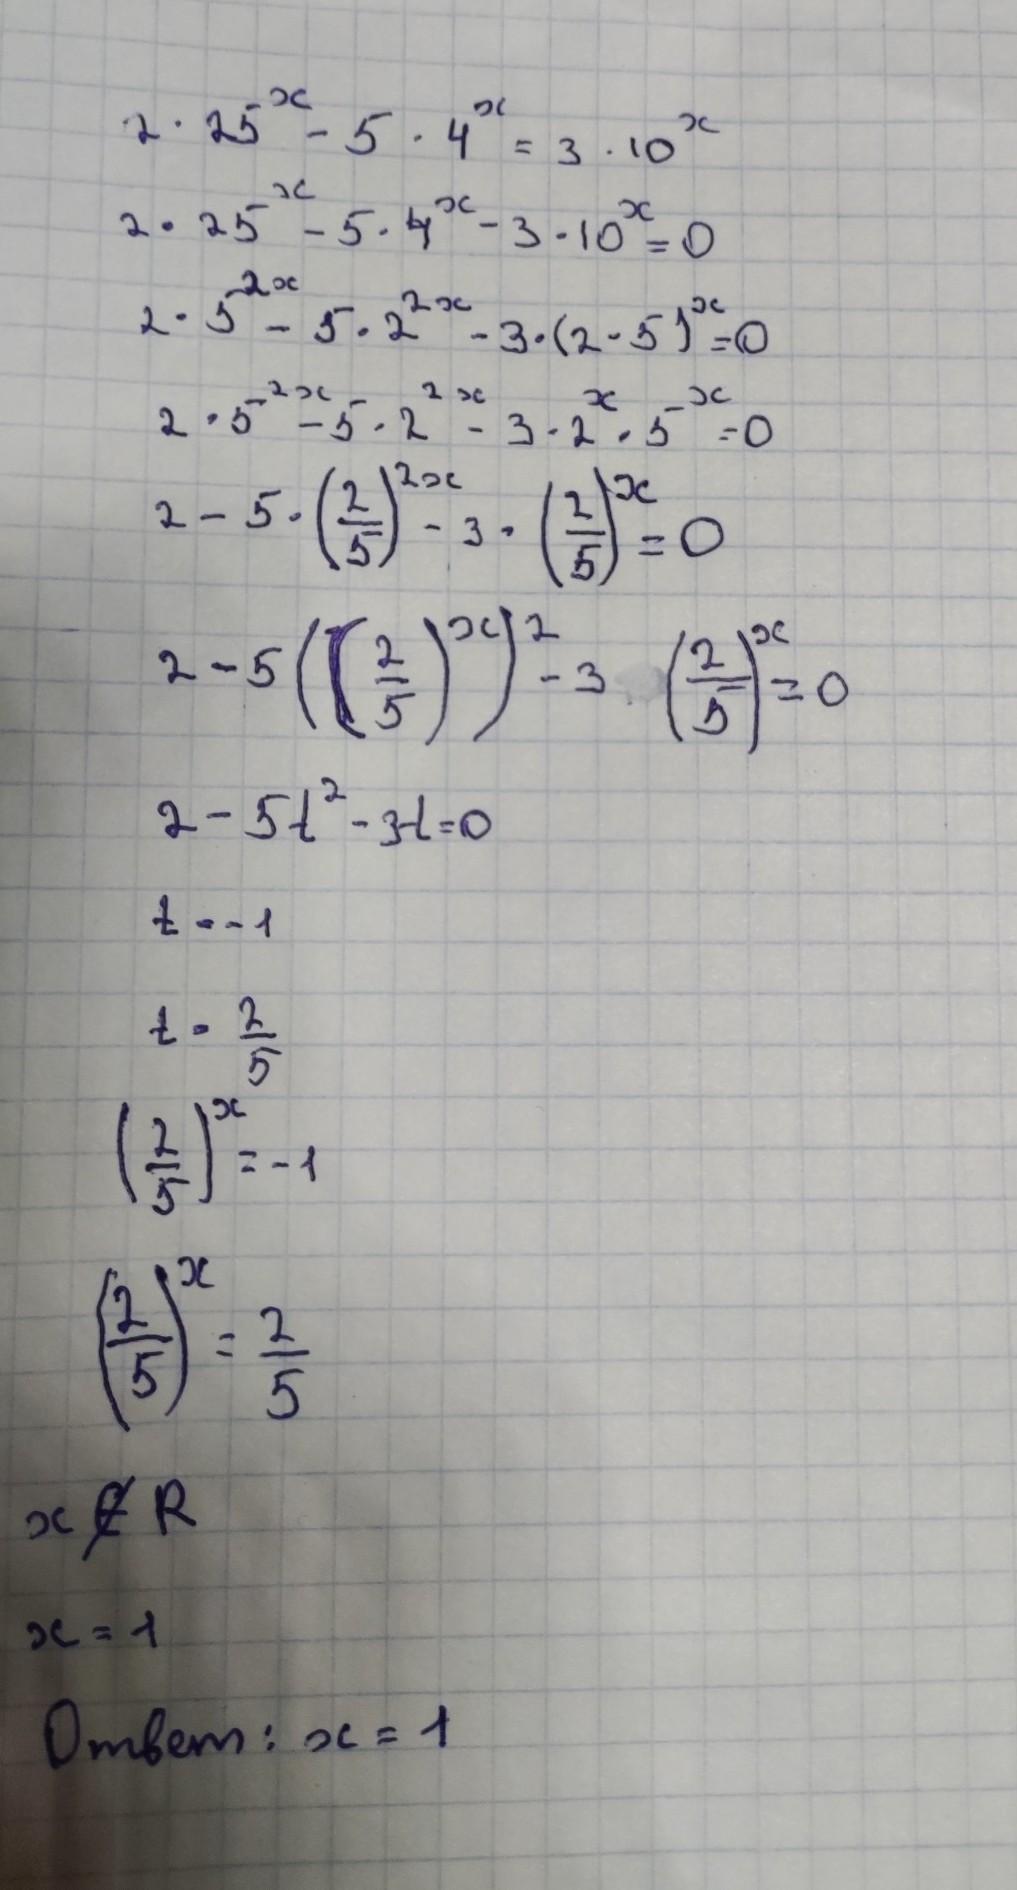 2 · 25^x - 5 · 4^x = 3 · 10^x
2 · 25^x - 5 · 4^x - 3 · 10^x = 0
2 · 5^2x - 5 · 2^2x - 3 · (2 · 5)^x = 0
2 · 5^2x - 5 · 2^2x - 3 · 2^x · 5^x = 0
2 - 5 · (2/5)^2x - 3 · (2/5)^x = 0
2 - 5((2/5)^x)^2 - 3 (2/5)^x = 0
2 - 5t^2 - 3t = 0
t = -1
t = 2/5
(2/5)^x = -1
(2/5)^x = 2/5
x ∉ R
x = 1
Ответ: x = 1